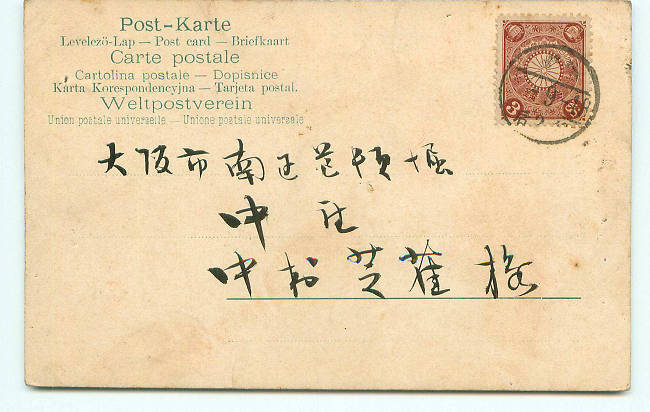 Post-Karte
Levelezö-Lap — Post card — Briefkaart
Carte postale
Cartolina postale — Dopisnice
Karta Korespondencyjna — Tarjeta postal.
Weltpostverein
Union postale universelle — Unione postale universale
3
大阪市南区道頓堀
中座
中村芝雀様